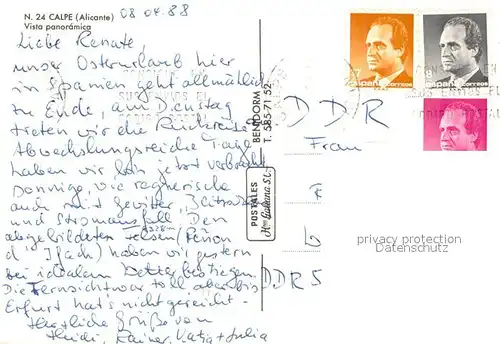 N. 24 CALPE (Alicante)
Vista panorámica
08 04. 88
Liebe Renate
unser Osterurlaub hier
in Spanien geht allmählich
zu Ende, am Dienstag
treten wir die Rückreise
Abwechslungsreiche Tage
haben wir hier jetzt verbracht
Sonnige, wie regnerische
auch mit Gewitter,
und Stromausfall. Den
328m
abgebildeten Felsen (Peñon
d' Ifach) haben wir gestern
bei idealem Wetter bestiegen.
Die Fernsicht war toll aber bis
Erfurt hat's nicht gereicht -
Herzliche Grüße von
Heidi, Rainer, Katja + Julia
BENIDORM
T. 585 71 52
POSTALES
Hnos Galiana S.L.
DDR
Frau
DDR 5
privacy protection
Datenschutz
España
correos